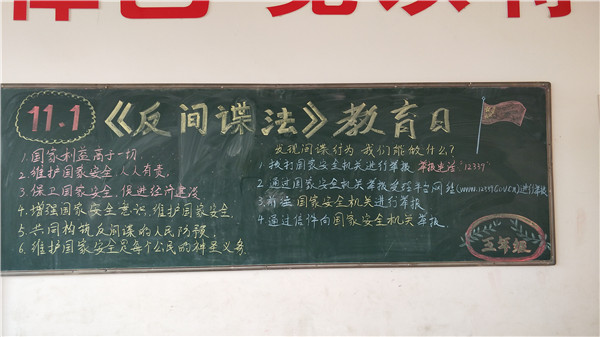 11.1《反间谍法》教育日
1.国家利益高于一切
2.维护国家安全,人人有责.
3.保卫国家安全,促进经济建设
4.增强国家安全意识,维护国家安全.
5.共同构筑反间谍的人民防线.
6.维护国家安全是每个公民的神圣义务
发现间谍行为 我们能做什么?
1.拨打国家安全机关进行举报 举报电话:"12339"
2.通过国家安全机关举报受理平台网站(www.12339.gov.cn)进行举报
3.前往国家安全机关进行举报
4.通过信件向国家安全机关举报.
五年级